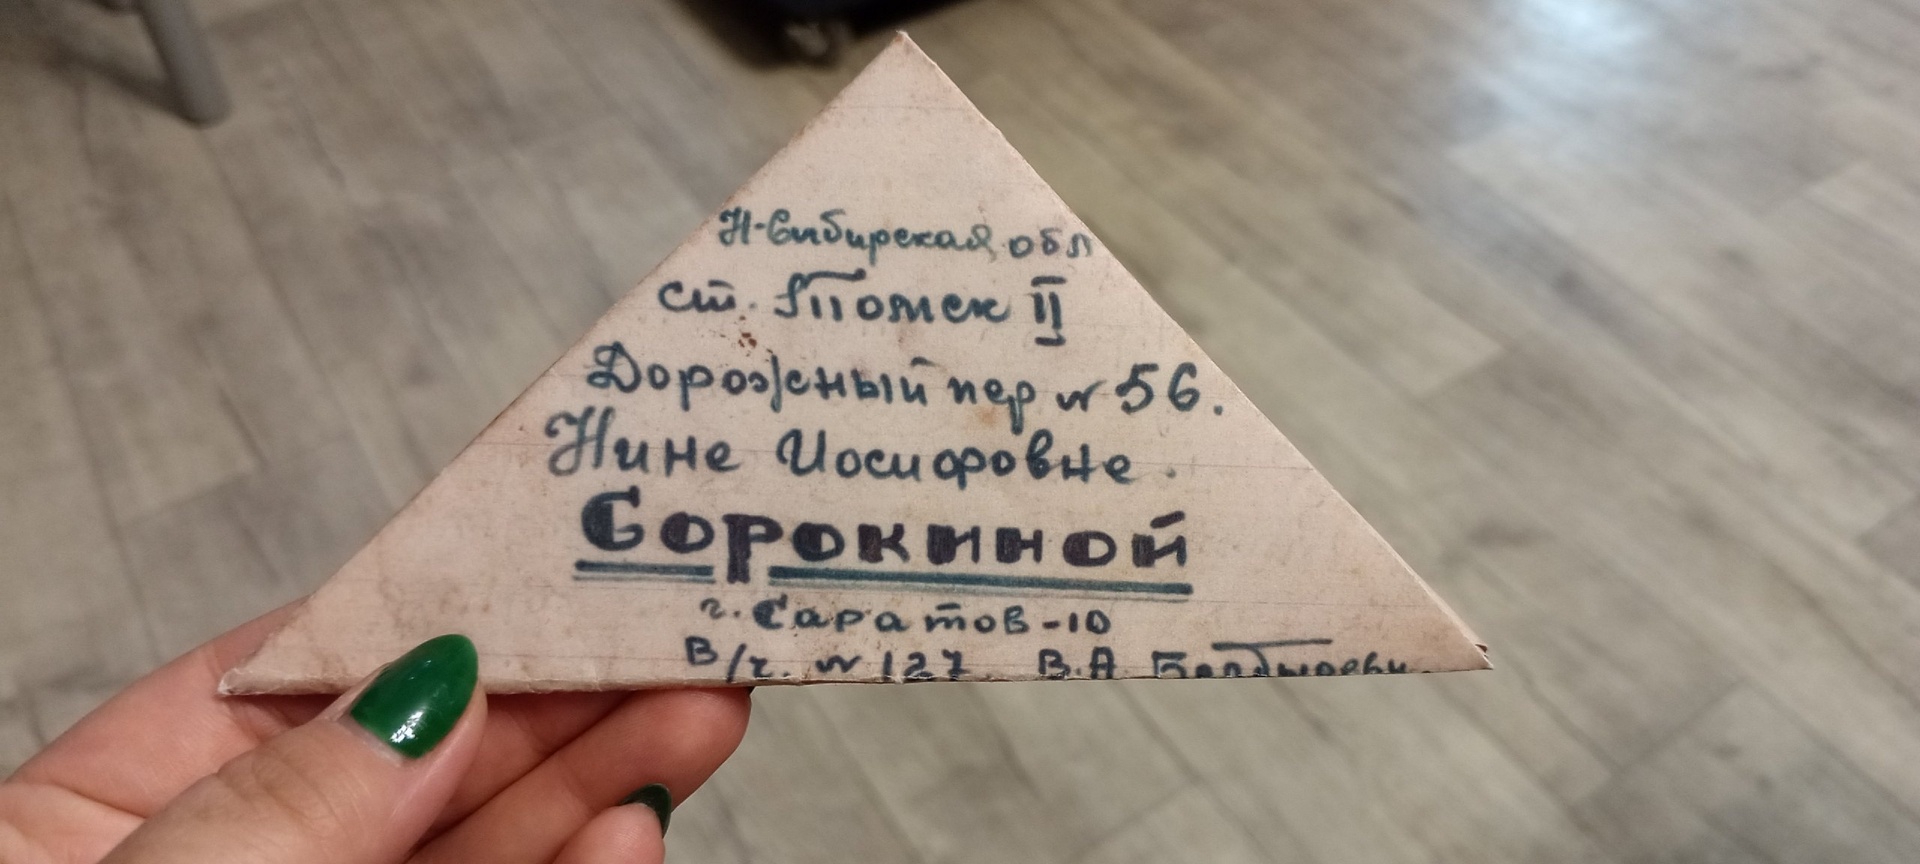 Н-Сибирская обл
ст. Томск II
Дорожный пер № 56.
Нине Иосифовне.
Сорокиной
г. Саратов-10
В/ч. № 127 В.А